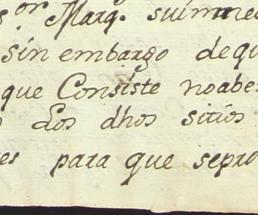 s.or Marq.
sin embargo de qu
que Consiste noaber
Los dhos sitios
es para que sepro